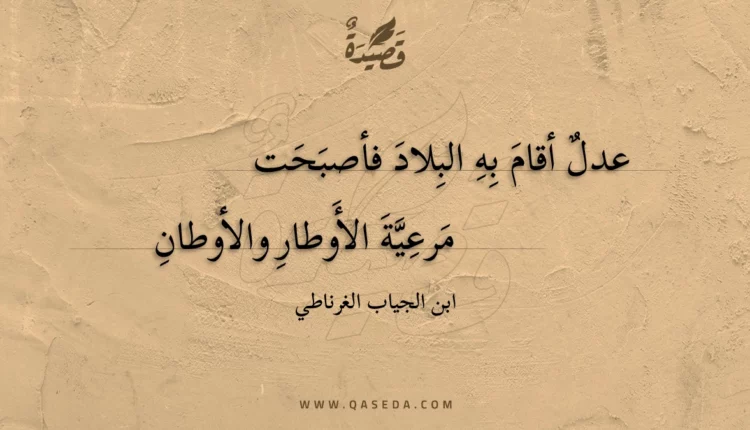 قَصِيدَةٌ
عدلٌ أقامَ بِهِ البِلادَ فأصبَحَت
مَرعِيَّةَ الأَوطارِ والأوطانِ
ابن الجياب الغرناطي
WWW.QASEDA.COM